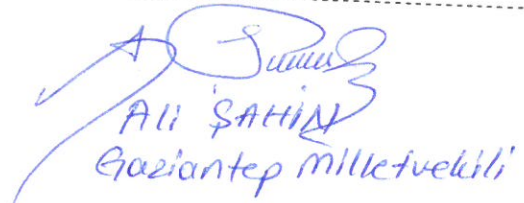 Ali ŞAHİN
Gaziantep Milletvekili